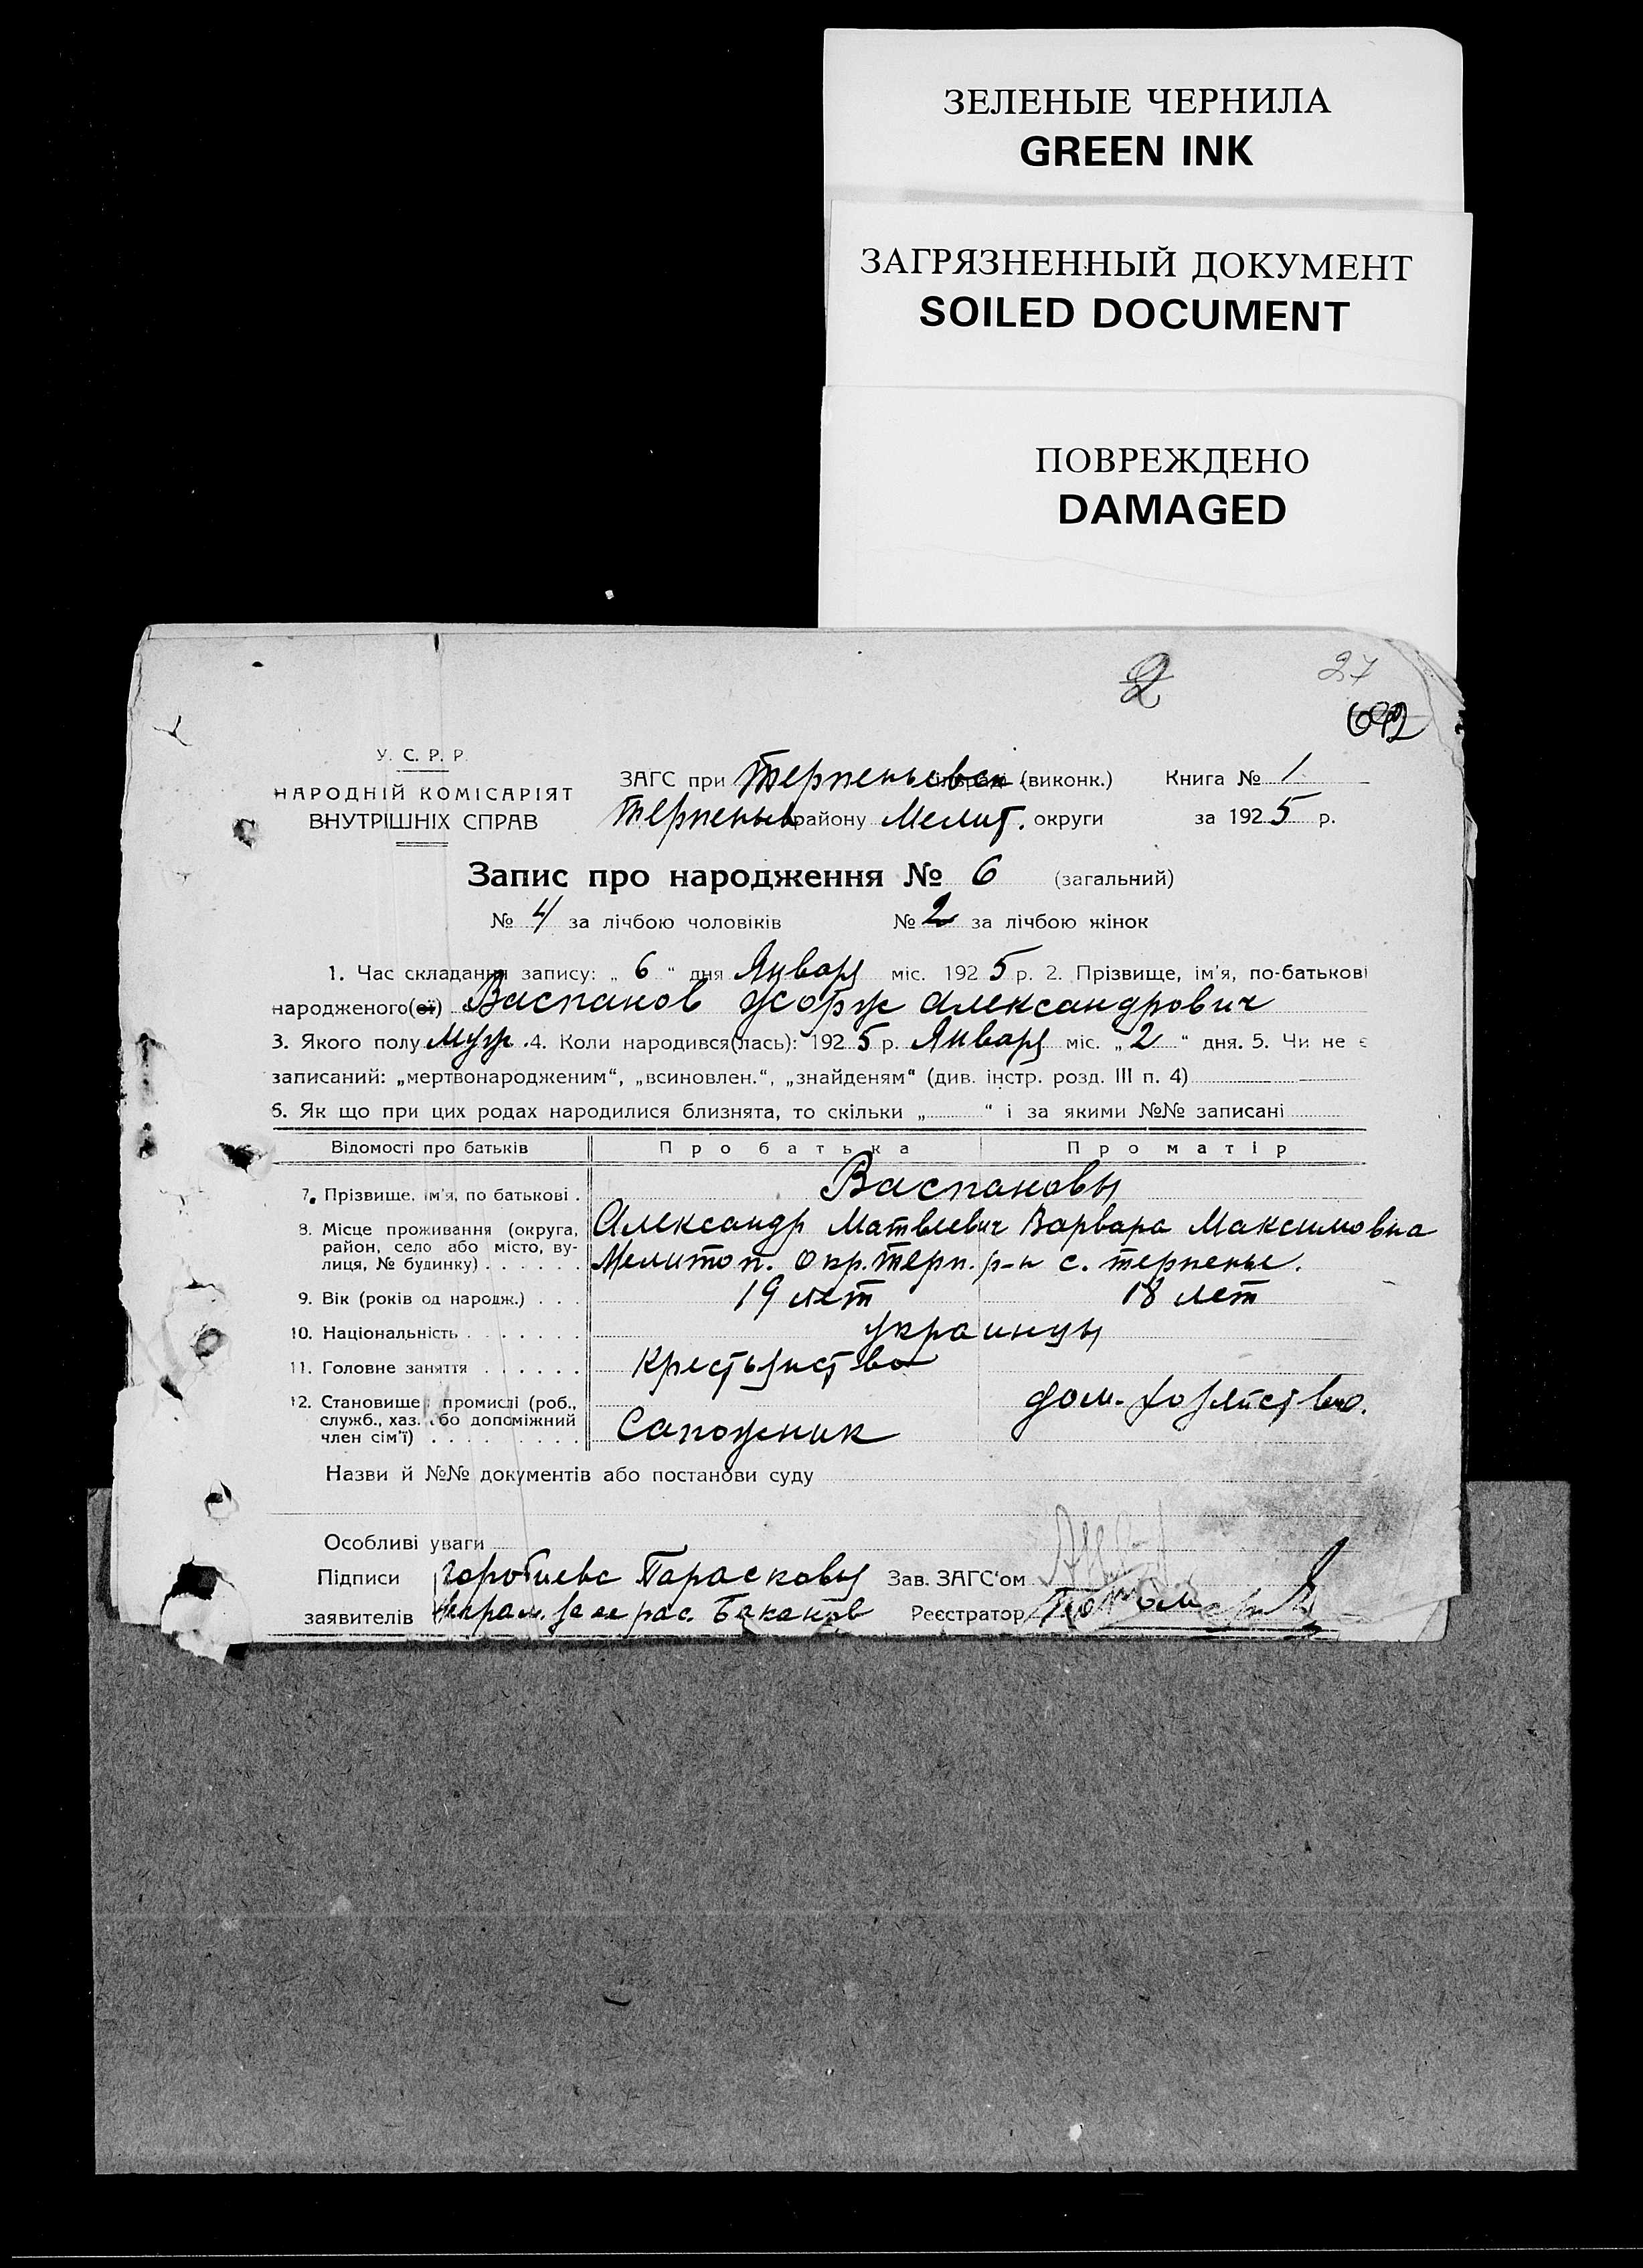 ЗЕЛЕНЫЕ ЧЕРНИЛА
GREEN INK
ЗАГРЯЗНЕННЫЙ ДОКУМЕНТ
SOILED DOCUMENT
ПОВРЕЖДЕНО
DAMAGED
2 27
692
У. С. Р. Р.
НАРОДНІЙ КОМІСАРІЯТ
ВНУТРІШНІХ СПРАВ
ЗАГС при Терпеньевск (виконк.) Книга № 1
Терпеньев району Мелит. округи за 1925 р.
Запис про народження № 6 (загальний)
№ 4 за лічбою чоловіків № 2 за лічбою жінок
1. Час складання запису: „ 6 “ дня Января міс. 1925 р. 2. Прізвище, ім’я, по-батькові
народженого(ої) Васпанов Жорж Александрович
3. Якого полу муж. 4. Коли народився(лась): 1925 р. Января міс. „ 2 “ дня. 5. Чи не є
записаний: „мертвонародженим“, „всиновлен.“, „знайденям“ (див. інстр. розд. III п. 4)
6. Як що при цих родах народилися близнята, то скільки „ “ і за якими №№ записані
Відомості про батьків Про батька Про матір
7. Прізвище, ім’я, по батькові . Васпановы
8. Місце проживання (округа, район, село або місто, вулиця, № будинку) . . . . . . Александр Матвеевич Варвара Максимовна
Мелитоп. окр. Терп. р-н с. терпенье.
9. Вік (років од народж.) . . . 19 лет 18 лет
10. Національність . . . . . . . украинцы
11. Головне заняття . . . . . . Крестьянство
12. Становище в промислі (роб., служб., хаз. або допоміжний член сім’ї) . . . . . . . . . Сапожник дом. хозяйство.
Назви й №№ документів або постанови суду
Особливі уваги
Підписи Парасковья Зав. ЗАГС‘ом
заявителів Баканов Реєстратор